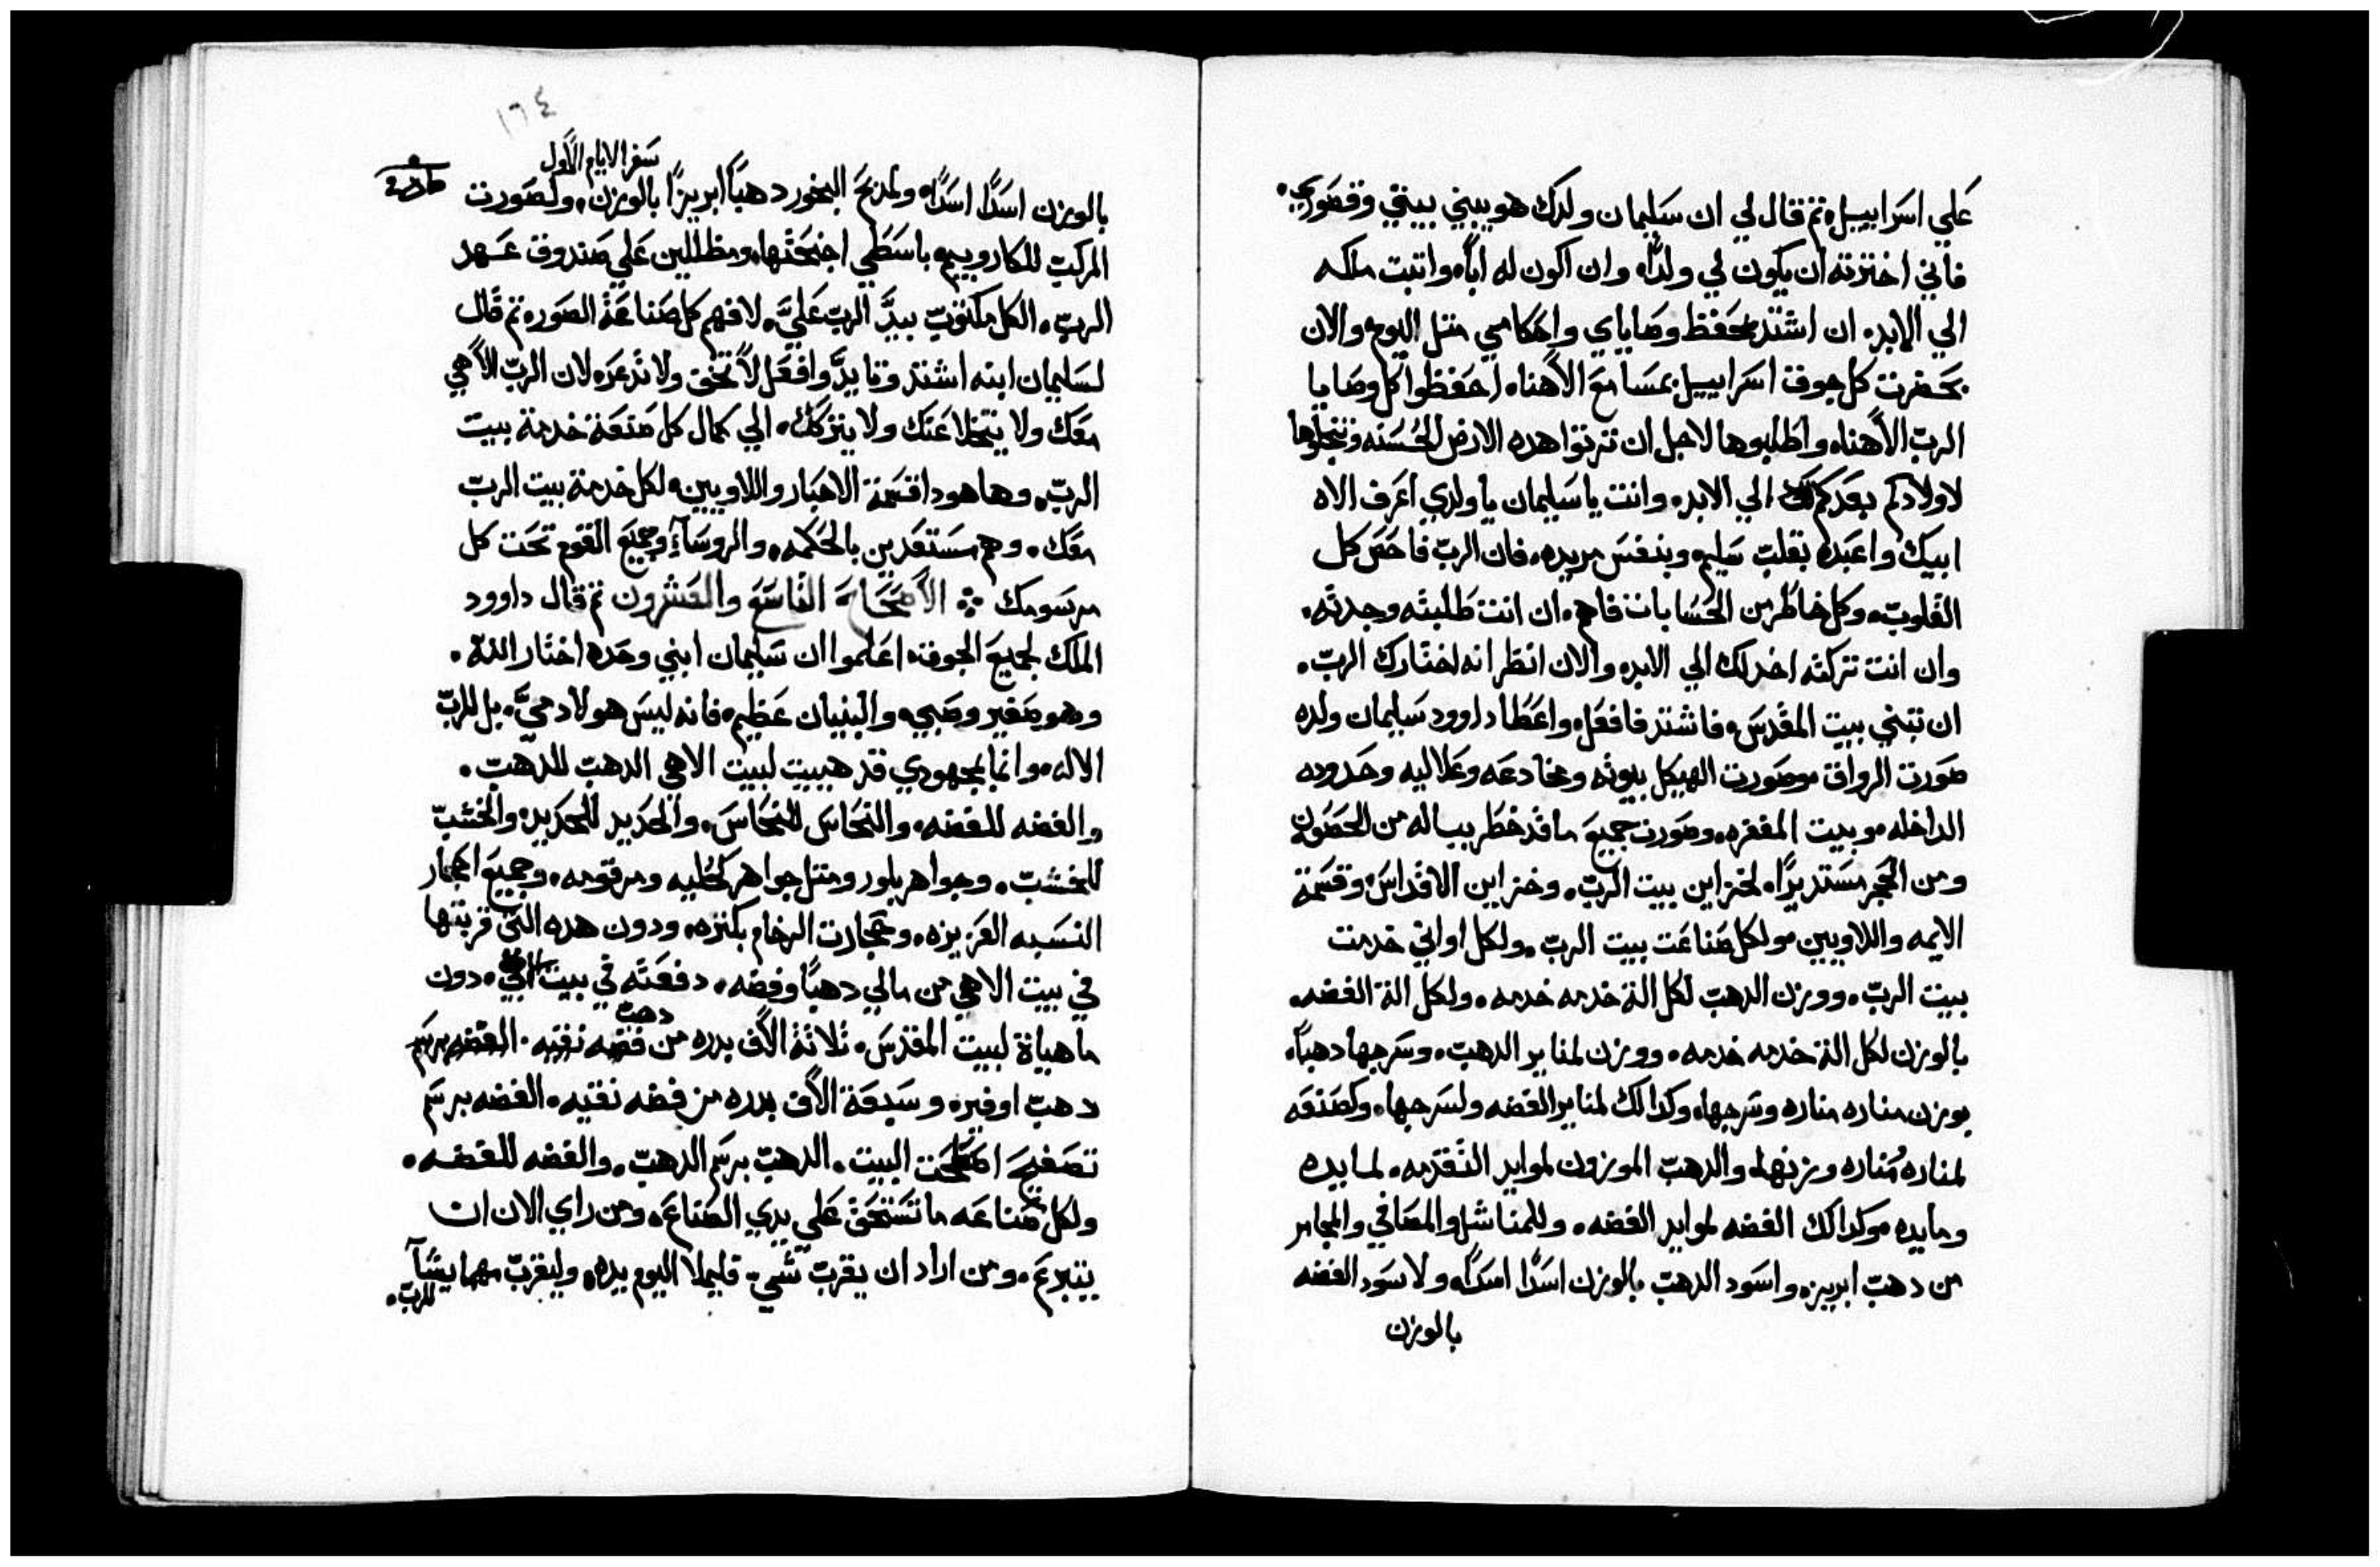 علي اسراييل، تم قال لي ان سليمان ولدك هو يبني بيتي وقصوري.
فاني اخترته ان يكون لي ولدًا، وان اكون له ابًا، واتبت ملكه
الي الابد، ان اشتد بحفظ وصاياي واحكامي متل اليوم، والان
بحضرت كل جوق اسراييل بمسامع الاهنا، احفظوا كل وصايا
الرب الاهنا، واطلبوها لاجل ان ترتوا هده الارض الحسنه وتنحلوها
لاولادكم بعدكم الي الابد، وانت يا سليمان يا ولدي اعرف الاه
ابيك واعبده بقلب سليم، وبنفس مريده، فان الرب فاحص كل
القلوب، وكل خاطر من الحسابات فاهم، ان انت طلبته وجدته.
وان انت تركته اخدلك الي الابد، والان انظر انه اختارك الرب.
ان تبني بيت المقدس، فاشتد فافعل، واعطا داوود سليمان ولده
صورت الرواق، وصورت الهيكل بيوته ومخادعه وعلاليه وحدوده
الداخله، وبيت المغفره، وصورت جميع ما قد خطر بباله من الحصون
ومن الحجر مستديرًا، لخزاين بيت الرب، وخزاين الاقداس، وقسمة
الايمه واللاويين، ولكل صناعت بيت الرب، ولكل اواني خدمت
بيت الرب، ووزن الدهب لكل الة خدمه خدمه، ولكل الة الفضه.
بالوزن لكل الة خدمه خدمه، ووزن لمناير الدهب، وسرجها دهبًا.
بوزن مناره مناره وسرجها، وكدالك لمناير الفضه ولسرجها، وكصنعه
لمناره مناره وزنها، والدهب الموزون لموايد التقدمه، لمايده
ومايده، وكدالك الفضه لموايد الفضه، وللمناشل والمصافي والمجامر
من دهب ابريز، واسود الدهب بالوزن اسدًا اسدًا، ولاسود الفضه
بالوزن
١٦٤
سفر الايام الاول
بالوزن اسدًا اسدًا، ولمدبح البخور دهبًا ابريزًا بالوزن، ولصورت
المركب للكاروبيم، باسطي اجنحتها، ومظللين علي صندوق عهد
الرب، الكل مكتوب بيد الرب عليَّ، لافهم كل صناعة الصوره، تم قال
لسليمان ابنه اشتد وتايد وافعل، لا تخف ولا تدعر، لان الرب الاهي
معك ولا يتخلا عنك ولا يتركك، الي كمال كل صنعة خدمة بيت
الرب، وها هودا قسمة الاحبار واللاويين، لكل خدمة بيت الرب
معك، وهم مستعدين بالحكمه، والروسآء وجميع القوم تحت كل
مرسومك ※ الاصحاح التاسع والعشرون تم قال داوود
الملك لجميع الجوقه، اعلموا ان سليمان ابني وحده اختار الله.
وهو صغير وصبي، والبنيان عظيم، فانه ليس هو لادميَّ، بل للرب
الاله، وانا بمجهودي قد هييت لبيت الاهي الدهب للدهب.
والفضه للفضه، والنحاس للنحاس، والحديد للحديد، والخشب
للخشب، وجواهر بلور ومتل جواهر كحليه ومرقومه، وجميع احجار
النسبه العزيزه، وحجارت الرخام بكتره، ودون هده التي قربتها
في بيت الاهي من مالي دهبًا وفضه، دفعته في بيت الاهي، دون
ما هياة لبيت المقدس، تلاتة الاف بدره من دهب
دهب اوفير، وسبعة الاف بدره من فضه نقيه، الفضه برسم
تصفيح اسطحت البيت، الدهب برسم الدهب، والفضه للفضه.
ولكل صناعه ما تستحق علي يدي الصناع، ومن راي الان ان
يتبرع، ومن اراد ان يقرب شي، فليملا اليوم يده، وليقرب مهما يشآ
للرب.